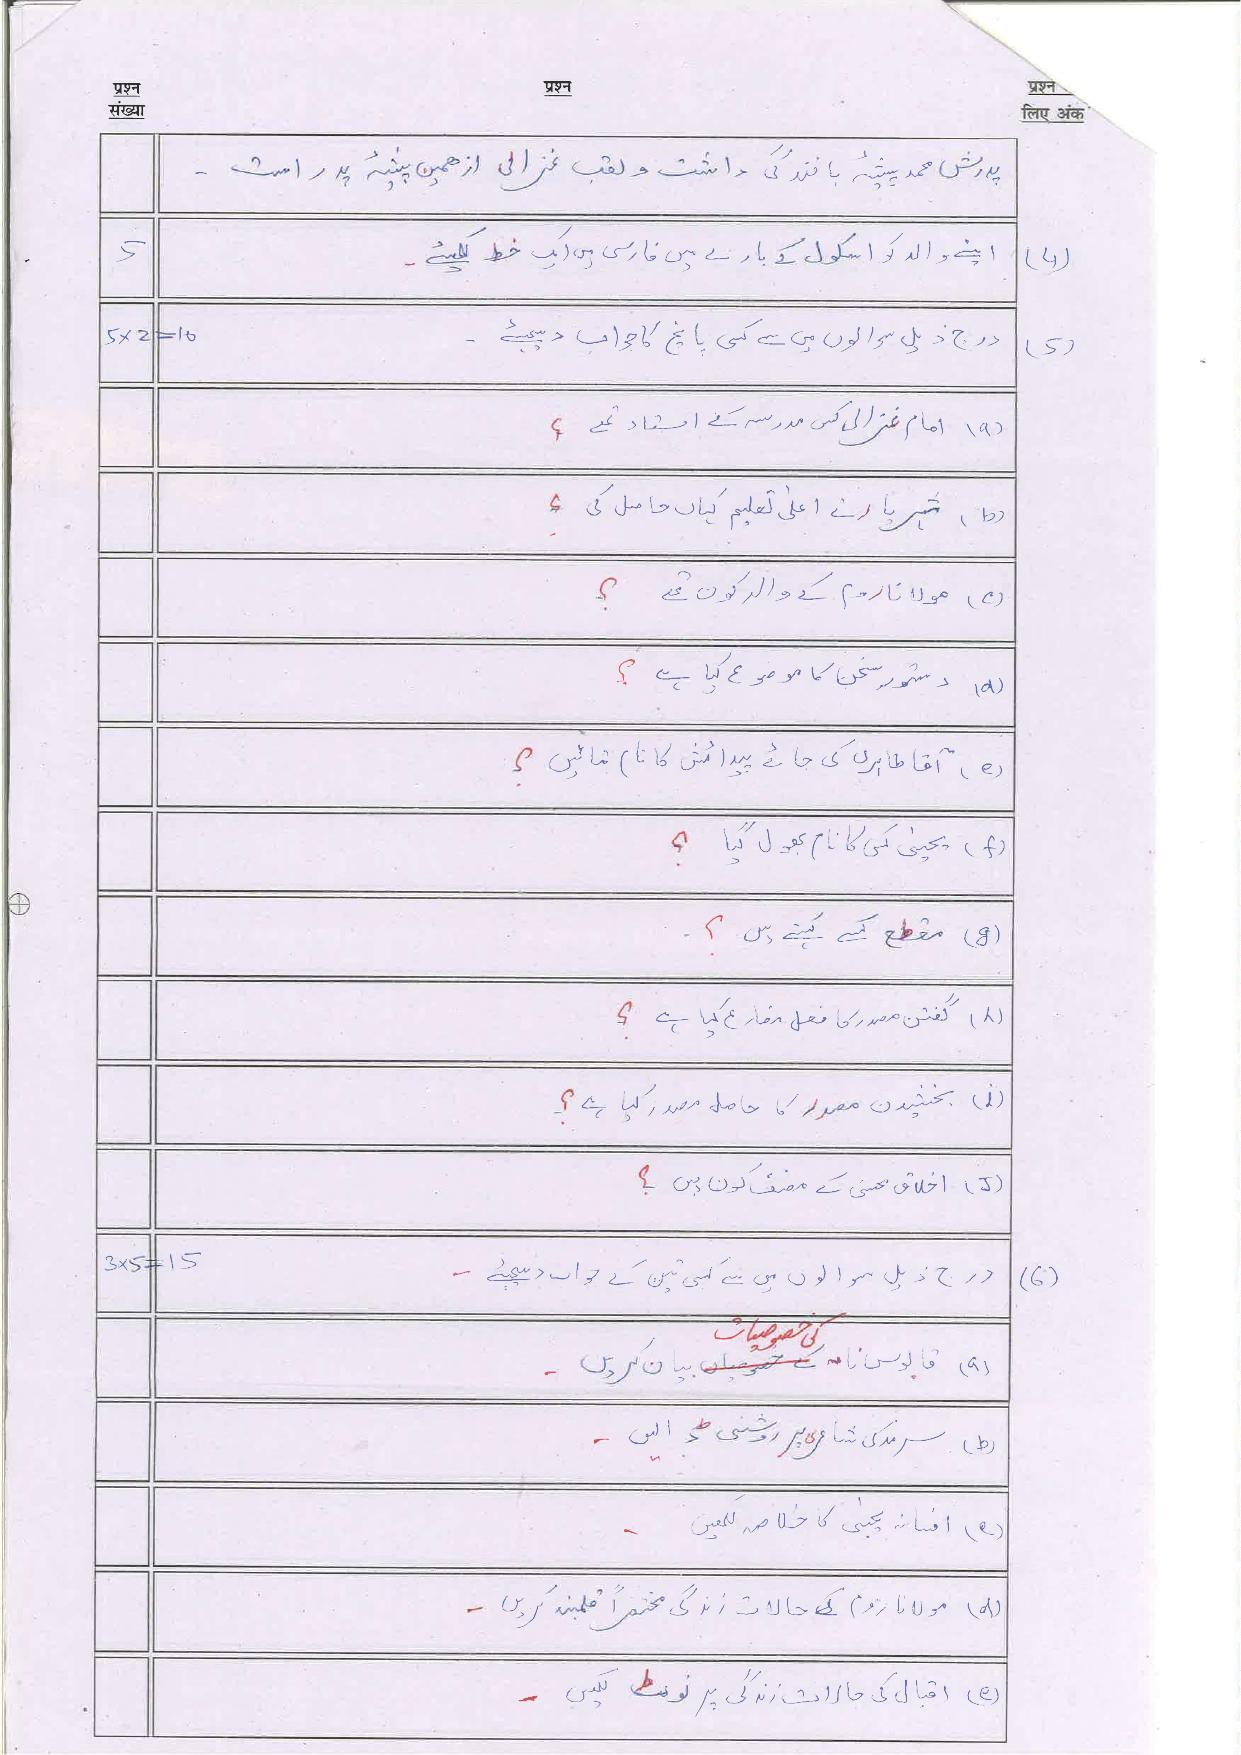 प्रश्न संख्या
प्रश्न
प्रश्न
लिए अंक
پدرش محمد پیشۂ بافندگی داشت و لقب غزالی از ہمین پیشۂ پدر است ۔
(4) اپنے والد کو اسکول کے بارے میں فارسی میں ایک خط لکھیئے ۔
5
(5) درج ذیل سوالوں میں سے کسی پانچ کا جواب دیجیئے ۔
5x2=10
(a) امام غزالی کس مدرسہ کے استاد تھے ؟
(b) شہریار نے اعلیٰ تعلیم کہاں حاصل کی ؟
(c) مولانا روم کے والد کون تھے ؟
(d) دستور سخن کا موضوع کیا ہے ؟
(e) آقا طاہری کی جائے پیدائش کا نام بتائیں ؟
(f) یحییٰ کس کا نام بھول گیا ؟
(g) مقطع کسے کہتے ہیں ؟
(h) گفتن مصدر کا فعل مضارع کیا ہے ؟
(i) بخشیدن مصدر کا حاصل مصدر کیا ہے ؟
(J) اخلاق محسنی کے مصنف کون ہیں ؟
(6) درج ذیل سوالوں میں سے کسی تین کے جواب دیجیئے ۔
3x5=15
کی خصوصیات
(a) قابوس نامہ کے بیان کریں ۔
(b) سرمد کی شاعری پر روشنی ڈالیں ۔
(c) افسانہ یحییٰ کا خلاصہ لکھیں ۔
(d) مولانا روم کے حالات زندگی مختصراً قلمبند کریں ۔
(e) اقبال کی حالات زندگی پر نوٹ لکھیں ۔